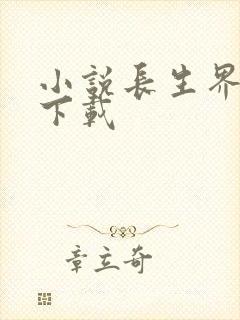 小說長生界
下載
章立奇